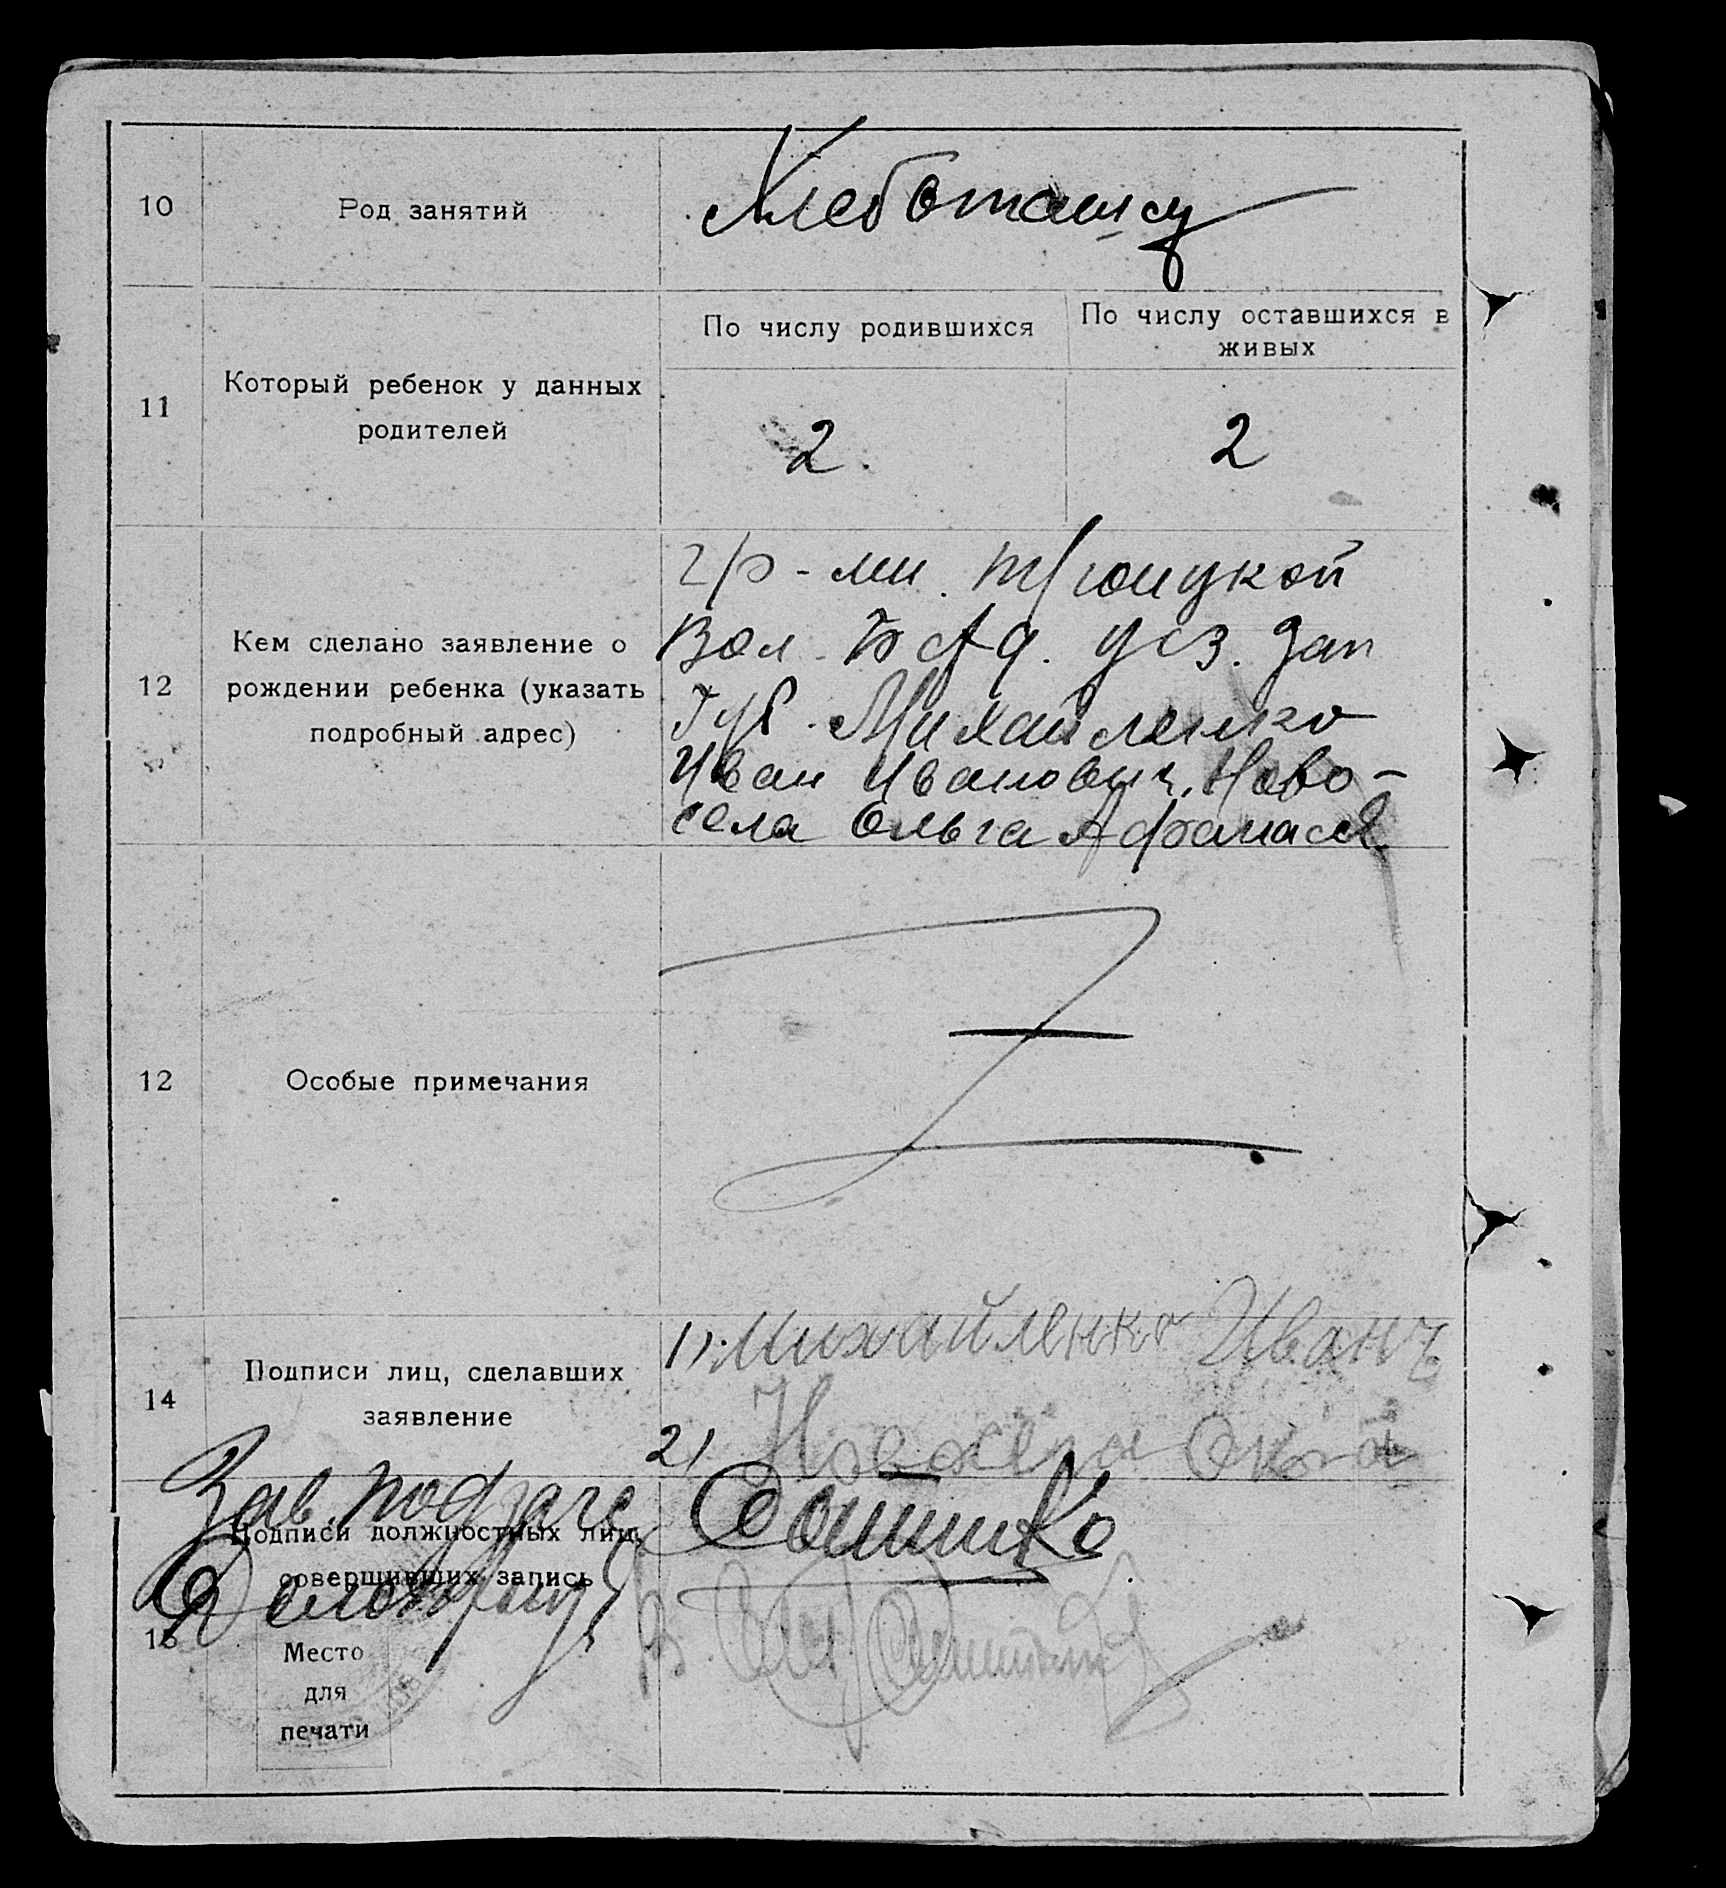 10
Род занятий
Хлебопашцы
11
Который ребенок у данных
родителей
По числу родившихся
По числу оставшихся в
живых
2.
2
12
Кем сделано заявление о
рождении ребенка (указать
подробный адрес)
гр-ми Троицкой
Вол. уез. Зап
Губ. Михайленко
Иван Иванович, Ново-
села Ольга Афанась
12
Особые примечания
14
Подписи лиц, сделавших
заявление
1) Михайленко Иванъ
2)
Зав. подзагс
15
Подписи должностных лиц,
совершивших запись
Делопр
Место
для
печати